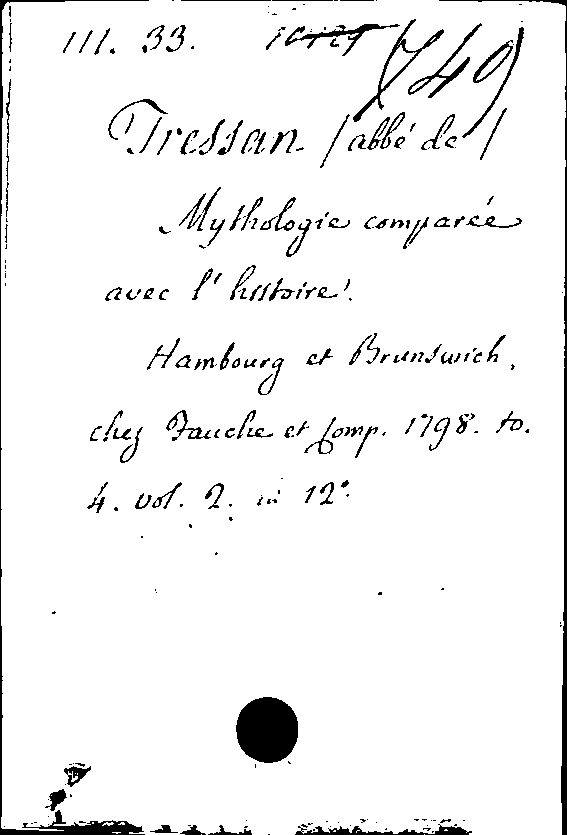 III. 33. (749)
Tressan (abbé de)
Mythologie comparée
avec l'histoire.
Hambourg et Brunswich,
chez Fauche et Comp. 1798. to.
4. vol. 2. in 12°.